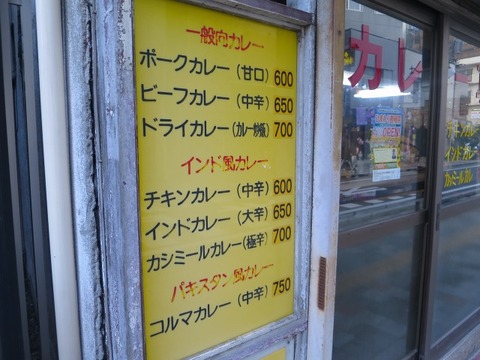 一般向カレー
ポークカレー(甘口) 600
ビーフカレー(中辛) 650
ドライカレー(カレー炒飯) 700
インド風カレー
チキンカレー(中辛) 600
インドカレー(大辛) 650
カシミールカレー(極辛) 700
パキスタン風カレー
コルマカレー(中辛) 750
カレー
OPEN
チキンカレー
インドカレー
カシミールカレ